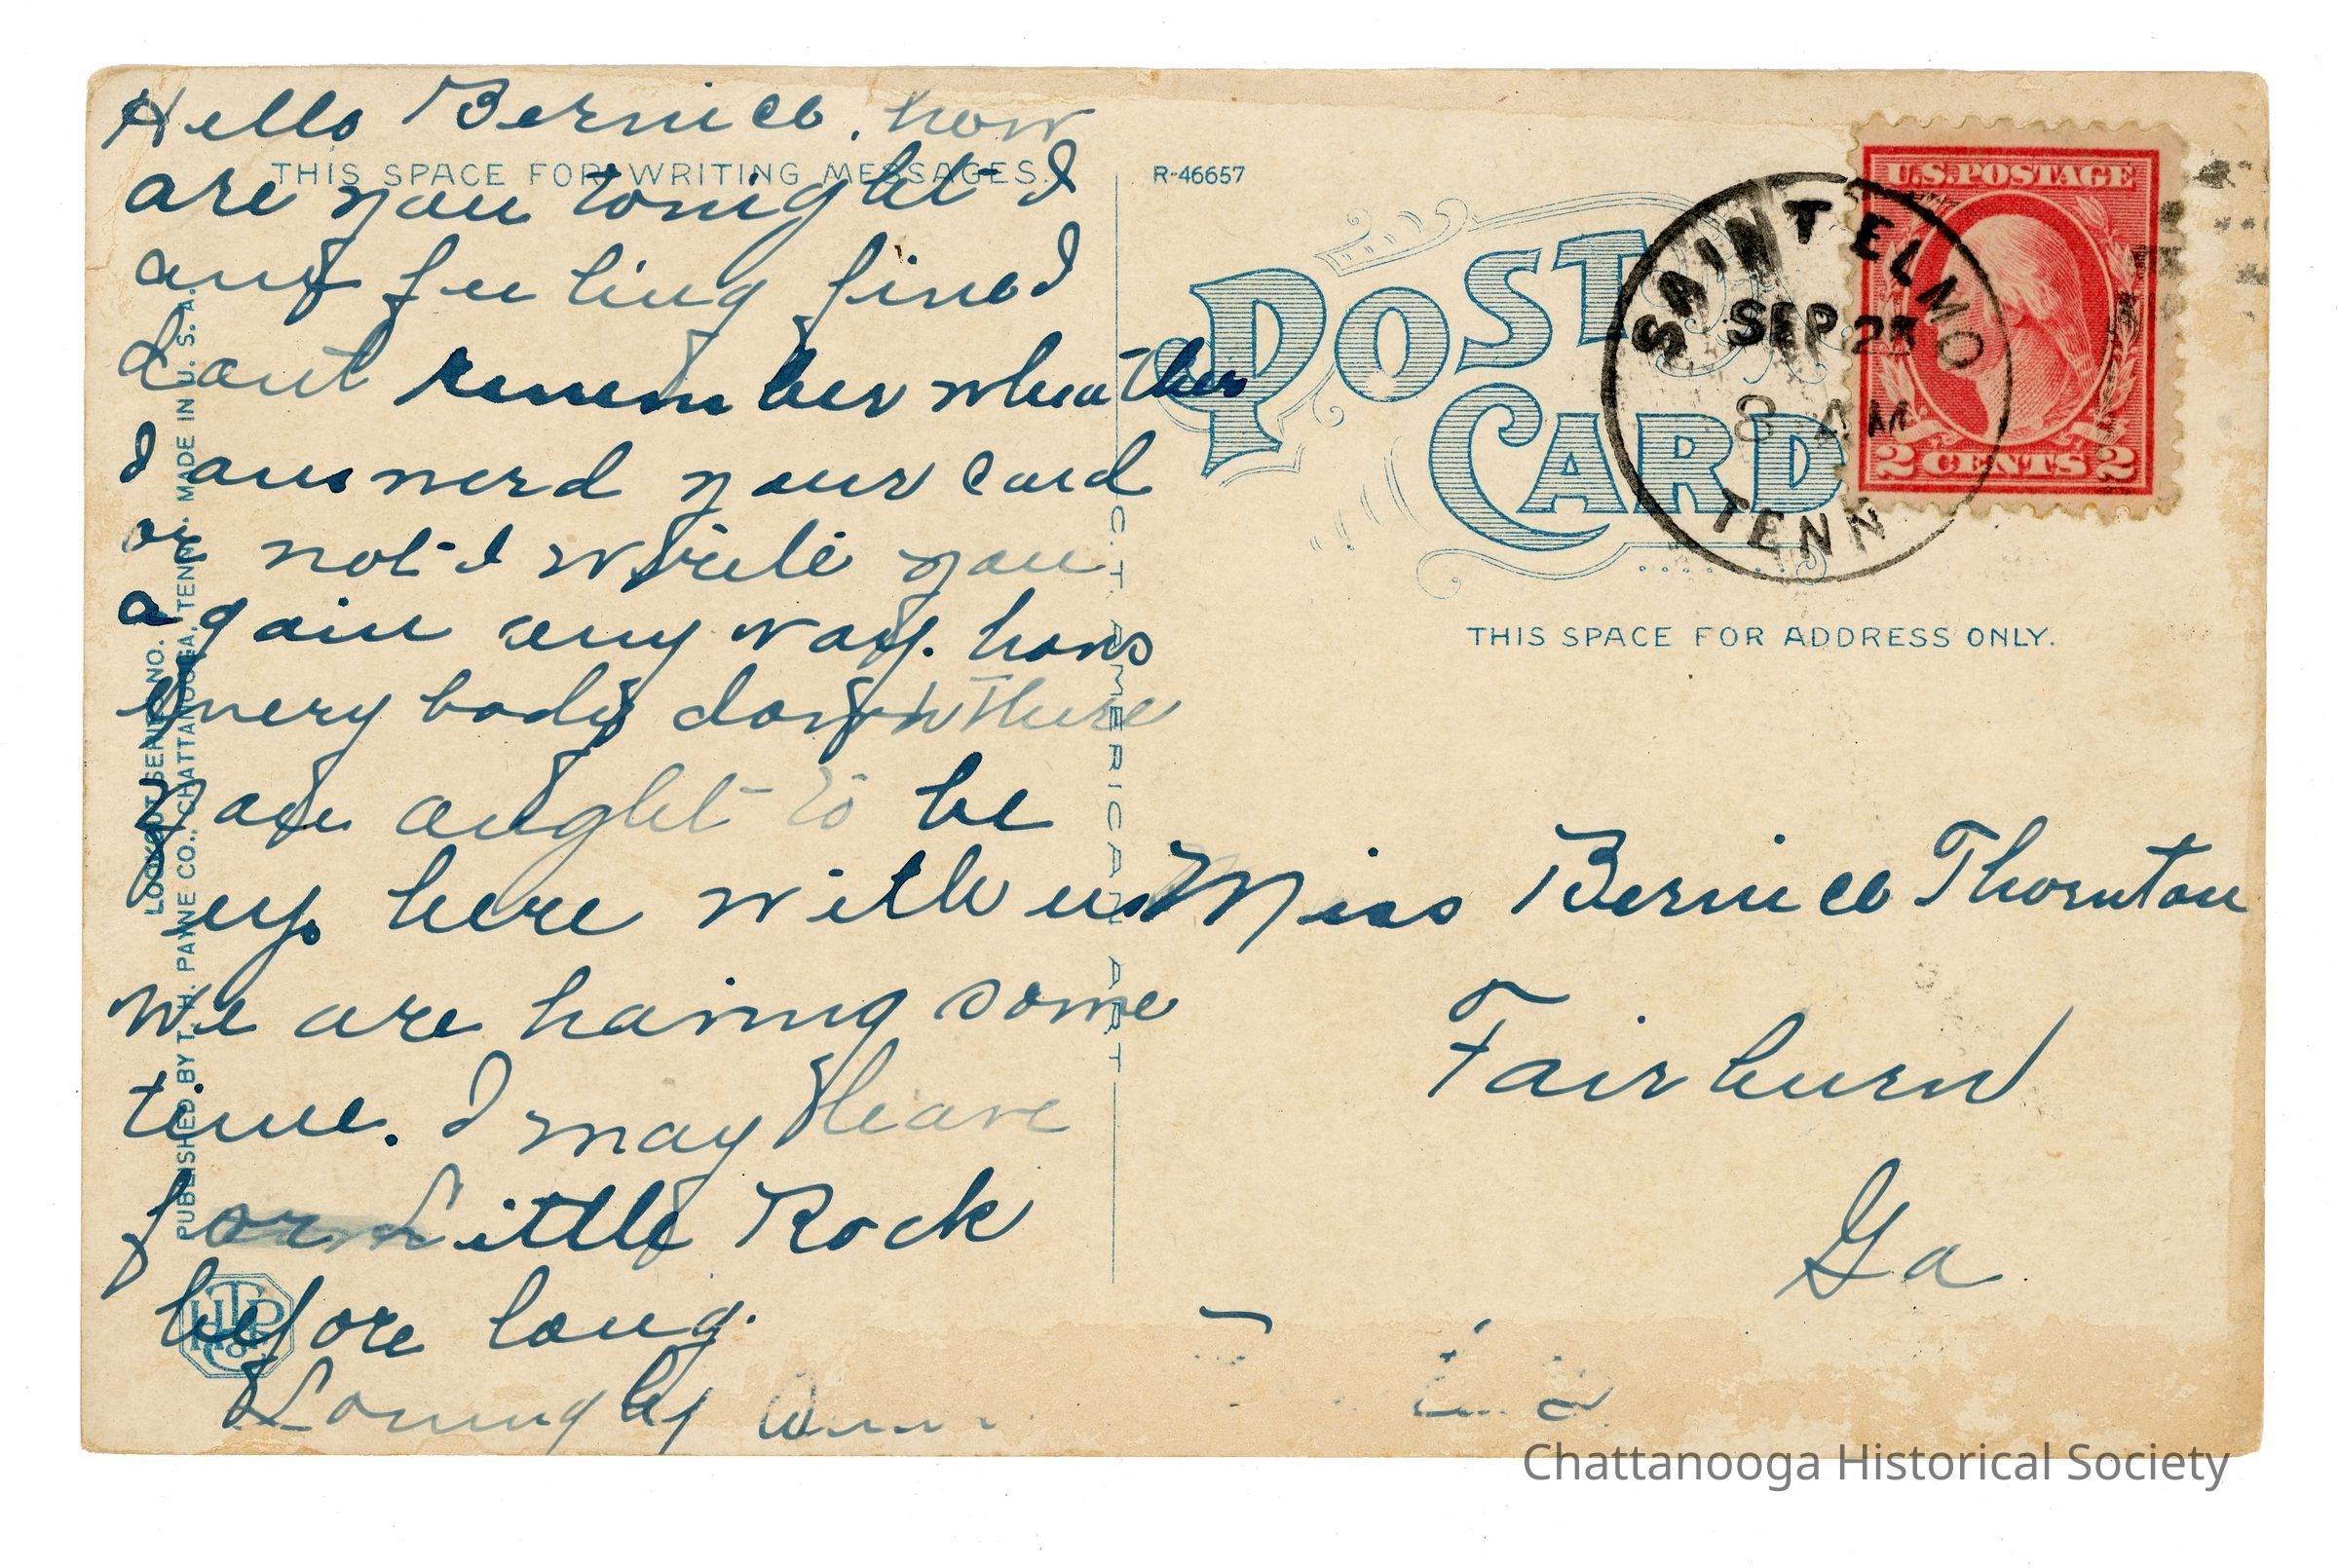 Hello Bernice. how
are you tonight I
am feeling fine I
dont remember wheather
I answerd your card
or not I write you
again any way. hows
every body down there
you ought to be
up here with us
We are having some
time. I may leave
for Little Rock
before long.
Lovingly
THIS SPACE FOR WRITING MESSAGES.
LOOKOUT SERIE NO.
PUBLISHED BY T. H. PAYNE CO., CHATTANOOGA, TENN. MADE IN U. S. A.
C. T. AMERICAN ART
R-46657
POST
CARD
SAINT ELMO
SEP 23
8 AM
TENN
U.S.POSTAGE
2 CENTS 2
THIS SPACE FOR ADDRESS ONLY.
Miss Bernice Thornton
Fairburn
Ga
Chattanooga Historical Society